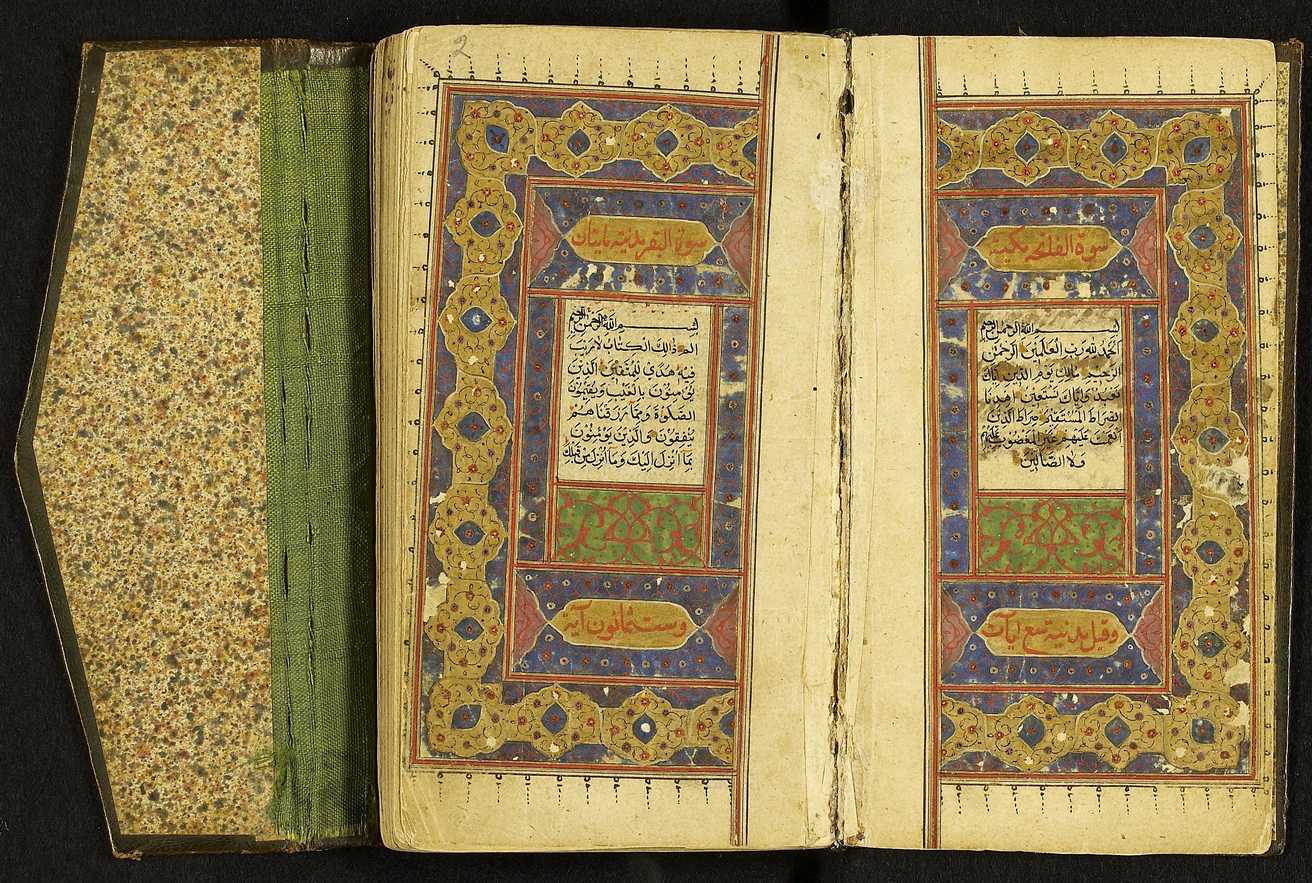 سورة الفاتحه مكية
بسم الله الرحمن الرحيم
الحمد لله رب العالمين الرحمن
الرحيم مالك يوم الدين اياك
نعبد واياك نستعين اهدنا
الصراط المستقيم صراط الذين
انعمت عليهم غير المغضوب عليهم
ولا الضالين
وقيل مدنية سبع ايات
2
سورة البقر مدنية مايتان
بسم الله الرحمن الرحيم
الم ذالك الكتاب لا ريب
فيه هدى للمتقين الذين
يؤمنون بالغيب ويقيمون
الصلوة ومما رزقناهم
ينفقون والذين يؤمنون
بما انزل اليك وما انزل من قبلك
وست ثمانون آية